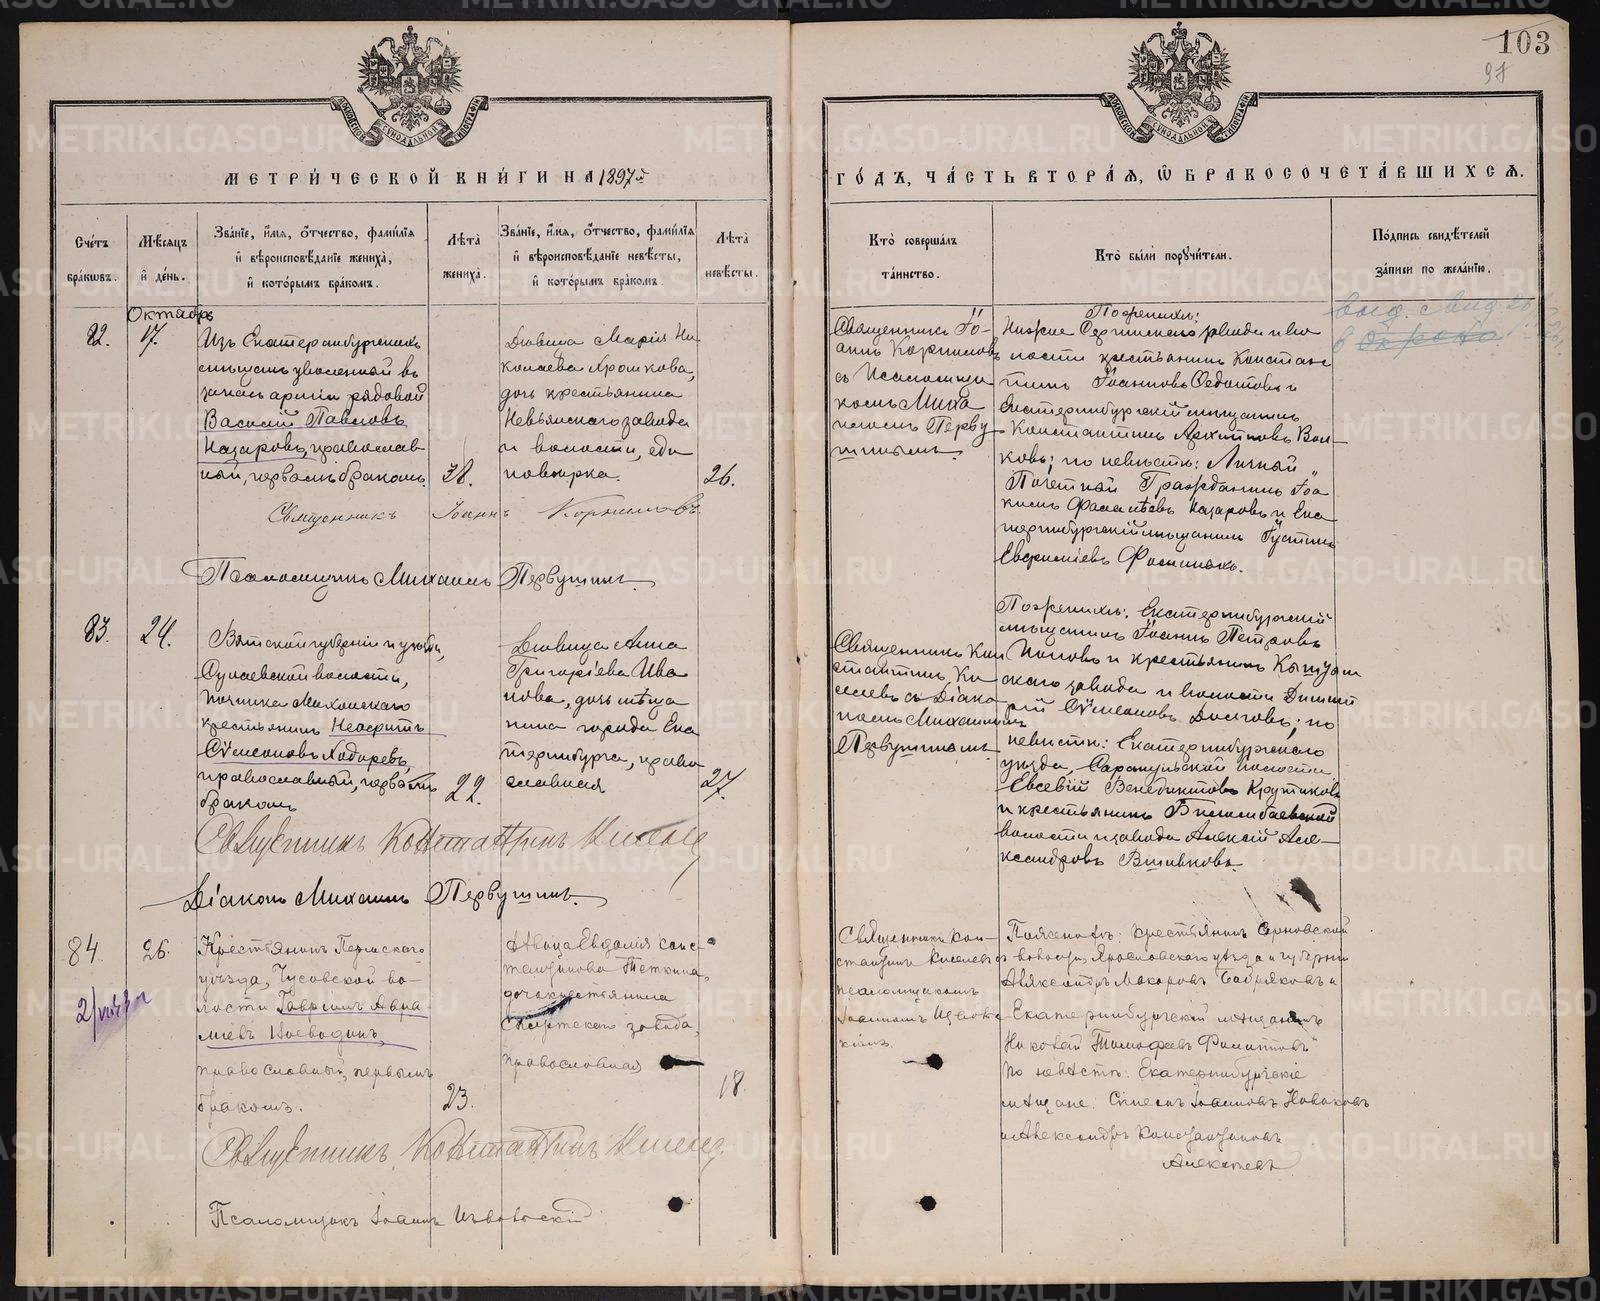 103
97
МЕТРИЧЕСКОЙ КНИГИ НА 1897й
ГОДЪ, ЧАСТЬ ВТОРАЯ, Ѡ БРАКОСОЧЕТАВШИХСЯ.
Счетъ браковъ.
Мѣсяцъ и день.
Званіе, имя, отчество, фамилія и вѣроисповѣданіе жениха, и которымъ бракомъ.
Лѣта жениха.
Званіе, имя, отчество, фамилія и вѣроисповѣданіе невѣсты, и которымъ бракомъ.
Лѣта невѣсты.
Кто совершалъ таинство.
Кто были поручители.
Подпись свидѣтелей записи по желанію.
Октябрь
82.
17.
Изъ Екатеринбургскихъ
мѣщанъ уволенный въ
запасъ арміи рядовой
Василій Павловъ
Назаровъ, православ
ный, первымъ бракомъ.
38.
Дѣвица Марія Ни
колаева Хромкова,
дочь крестьянина
Невьянскаго завода
и волости, еди
новѣрка.
26.
Священникъ Іо-
аннъ Корниловъ
съ Псаломщи
комъ Миха
иломъ Перву
шинымъ.
По женихѣ:
Нижне Сергинскаго завода и во
лости крестьянинъ Констан
тинъ Іоанновъ Федотовъ и
Екатеринбургскій мѣщанинъ
Константинъ Архиповъ Вол-
ковъ; по невѣстѣ: Личный
Почетный Гражданинъ Іоа
кимъ Фаллѣевъ Назаровъ и Ека
теринбургскій мѣщанинъ Іустинъ
Евфиміевъ Фоминыхъ.
Священникъ Іоаннъ Корниловъ
Псаломщикъ Михаилъ Первушинъ.
83.
24.
Вятской губерніи и уѣзда,
волости,
починка
крестьянинъ Неофитъ
Сѵмеоновъ Ходыревъ,
православный, первымъ
бракомъ
22.
Дѣвица Анна
Григоріева Ива
нова, дочь мѣща
нина города Ека
теринбурга, право
славная
27.
Священникъ Кон
стантинъ Ки
селевъ съ Діако
номъ Михаиломъ
Первушинымъ
По женихѣ: Екатеринбургскій
мѣщанинъ Іоаннъ Петровъ
Поповъ и крестьянинъ Кыштым
скаго завода и волости Димит
рій Сѵмеоновъ Долговъ; по
невѣстѣ: Екатеринбургскаго
уѣзда, волости
Евсевій Венедиктовъ Крутиковъ
и крестьянинъ Билимбаевской
волости и завода Алексій Але-
ксандровъ Вшивковъ.
Священникъ Константинъ Киселев
Діаконъ Михаилъ Первушинъ.
84.
26.
Крестьянинъ Пермскаго
уѣзда, Чусовской во-
лости Гавріилъ Авра
міевъ Воеводинъ,
православный, первымъ
бракомъ.
23.
Дѣвица Евдокія Конс-
тантинова Теткина,
дочь крестьянина
завода,
православная
18.
Священникъ Кон-
стантинъ Киселевъ съ
псаломщикомъ
Іоанномъ
По женихѣ: крестьянинъ
волости, Ярославского уѣзда и губерніи
Александръ Макаровъ и
Екатеринбургскій мѣщанинъ
Николай Тимофеевъ Филипповъ
По невѣстѣ: Екатеринбургскіе
мѣщане: Іоанновъ Новиковъ
и Александръ Константиновъ
Алексѣевъ
Священникъ Константинъ Киселев
Псаломщикъ Іоаннъ